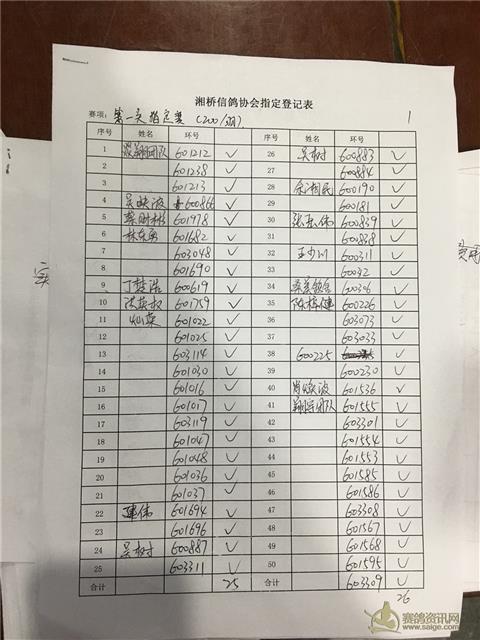 湘桥信鸽协会指定登记表
赛项: 第一关指定赛 (200/羽) 1
序号 姓名 环号 序号 姓名 环号
1 601212 ✓ 26 吴树 600883 ✓
2 601238 ✓ 27 600884 ✓
3 601213 ✓ 28 余湘民 600190 ✓
4 吴映波 600866 ✓ 29 600181 ✓
5 蔡时彬 601978 ✓ 30 600839 ✓
6 601682 ✓ 31 600838 ✓
7 603048 ✓ 32 王少川 600311 ✓
8 601690 ✓ 33 60032 ✓
9 丁楚浩 600619 ✓ 34 600306 ✓
10 601759 ✓ 35 600226 ✓
11 601022 ✓ 36 603073 ✓
12 601025 ✓ 37 603033 ✓
13 603114 ✓ 38 600225 ✓
14 601030 ✓ 39 600230 ✓
15 601016 ✓ 40 601536 ✓
16 601017 ✓ 41 翔宇团队 601555 ✓
17 603119 ✓ 42 603301 ✓
18 601047 ✓ 43 601554 ✓
19 601048 ✓ 44 601553 ✓
20 601036 ✓ 45 601585 ✓
21 601037 ✓ 46 601586 ✓
22 建伟 601694 ✓ 47 603308 ✓
23 601696 ✓ 48 601567 ✓
24 吴树 600887 ✓ 49 601568 ✓
25 603311 ✓ 50 601595 ✓
合计 25 合计 603309 ✓
26
赛鸽资讯网
www.saige.com